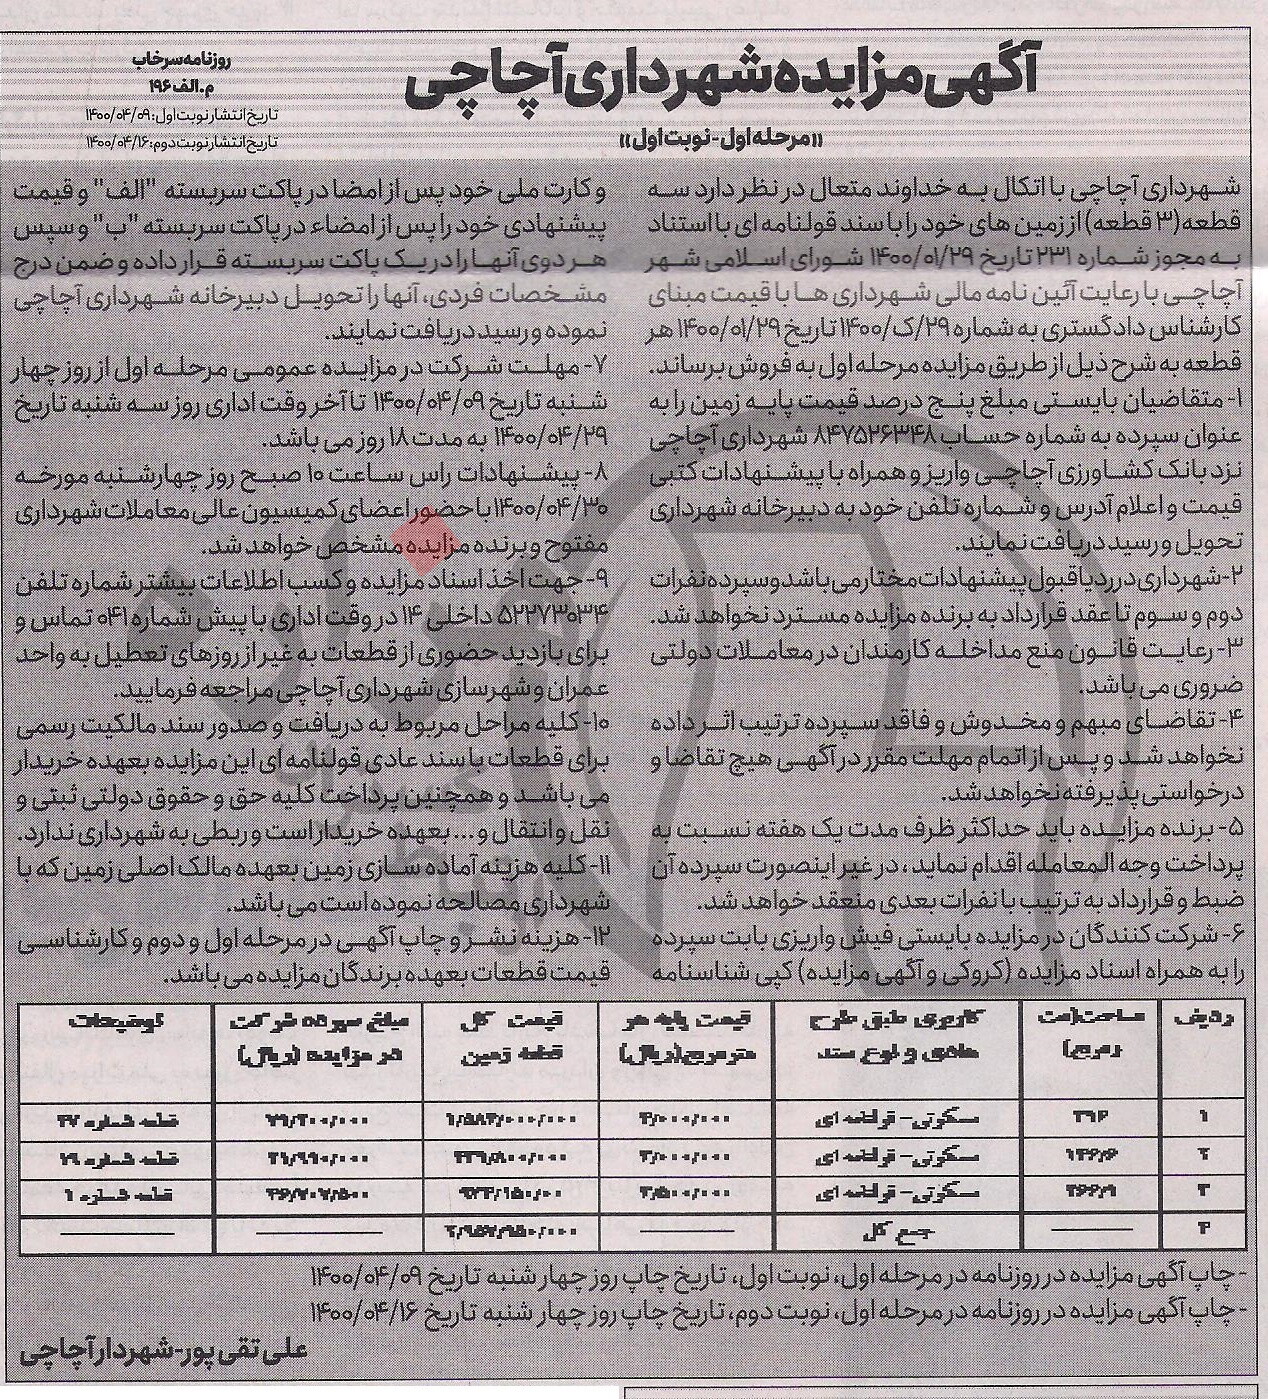 آگهی مزایده شهرداری آچاچی
«مرحله اول - نوبت اول»
روزنامه سرخاب
م.الف ۱۹۶
تاریخ انتشار نوبت اول: ۱۴۰۰/۰۴/۰۹
تاریخ انتشار نوبت دوم: ۱۴۰۰/۰۴/۱۶
شهرداری آچاچی با اتکال به خداوند متعال در نظر دارد سه
قطعه (۳ قطعه) از زمین های خود را با سند قولنامه ای با استناد
به مجوز شماره ۲۳۱ تاریخ ۱۴۰۰/۰۱/۲۹ شورای اسلامی شهر
آچاچی با رعایت آئین نامه مالی شهرداری ها با قیمت مبنای
کارشناس دادگستری به شماره ۲۹/ک/۱۴۰۰ تاریخ ۱۴۰۰/۰۱/۲۹ هر
قطعه به شرح ذیل از طریق مزایده مرحله اول به فروش برساند.
۱- متقاضیان بایستی مبلغ پنج درصد قیمت پایه زمین را به
عنوان سپرده به شماره حساب ۸۴۷۵۲۶۳۴۸ شهرداری آچاچی
نزد بانک کشاورزی آچاچی واریز و همراه با پیشنهادات کتبی
قیمت و اعلام آدرس و شماره تلفن خود به دبیرخانه شهرداری
تحویل و رسید دریافت نمایند.
۲- شهرداری در رد یا قبول پیشنهادات مختار می باشد و سپرده نفرات
دوم و سوم تا عقد قرارداد به برنده مزایده مسترد نخواهد شد.
۳- رعایت قانون منع مداخله کارمندان در معاملات دولتی
ضروری می باشد.
۴- تقاضای مبهم و مخدوش و فاقد سپرده ترتیب اثر داده
نخواهد شد و پس از اتمام مهلت مقرر در آگهی هیچ تقاضا و
درخواستی پذیرفته نخواهد شد.
۵- برنده مزایده باید حداکثر ظرف مدت یک هفته نسبت به
پرداخت وجه المعامله اقدام نماید، در غیر اینصورت سپرده آن
ضبط و قرارداد به ترتیب با نفرات بعدی منعقد خواهد شد.
۶- شرکت کنندگان در مزایده بایستی فیش واریزی بابت سپرده
را به همراه اسناد مزایده (کروکی و آگهی مزایده) کپی شناسنامه
و کارت ملی خود پس از امضا در پاکت سربسته "الف" و قیمت
پیشنهادی خود را پس از امضاء در پاکت سربسته "ب" و سپس
هر دوی آنها را در یک پاکت سربسته قرار داده و ضمن درج
مشخصات فردی، آنها را تحویل دبیرخانه شهرداری آچاچی
نموده و رسید دریافت نمایند.
۷- مهلت شرکت در مزایده عمومی مرحله اول از روز چهار
شنبه تاریخ ۱۴۰۰/۰۴/۰۹ تا آخر وقت اداری روز سه شنبه تاریخ
۱۴۰۰/۰۴/۲۹ به مدت ۱۸ روز می باشد.
۸- پیشنهادات راس ساعت ۱۰ صبح روز چهارشنبه مورخه
۱۴۰۰/۰۴/۳۰ با حضور اعضای کمیسیون عالی معاملات شهرداری
مفتوح و برنده مزایده مشخص خواهد شد.
۹- جهت اخذ اسناد مزایده و کسب اطلاعات بیشتر شماره تلفن
۵۲۲۷۳۰۳۴ داخلی ۱۴ در وقت اداری با پیش شماره ۰۴۱ تماس و
برای بازدید حضوری از قطعات به غیر از روزهای تعطیل به واحد
عمران و شهرسازی شهرداری آچاچی مراجعه فرمایید.
۱۰- کلیه مراحل مربوط به دریافت و صدور سند مالکیت رسمی
برای قطعات با سند عادی قولنامه ای این مزایده بعهده خریدار
می باشد و همچنین پرداخت کلیه حق و حقوق دولتی ثبتی و
نقل و انتقال و... بعهده خریدار است و ربطی به شهرداری ندارد.
۱۱- کلیه هزینه آماده سازی زمین بعهده مالک اصلی زمین که با
شهرداری مصالحه نموده است می باشد.
۱۲- هزینه نشر و چاپ آگهی در مرحله اول و دوم و کارشناسی
قیمت قطعات بعهده برندگان مزایده می باشد.
ردیف مساحت(مت رمربع) کاربری طبق طرح هادی و نوع سند قیمت پایه هر مترمربع(ریال) قیمت کل قطعه زمین مبلغ سپرده شرکت در مزایده (ریال) توضیحات
۱ ۳۹۶ مسکونی- قولنامه ای ۴/۰۰۰/۰۰۰ ۱/۵۸۴/۰۰۰/۰۰۰ ۷۹/۲۰۰/۰۰۰ قطعه شماره ۴۷
۲ ۱۴۶/۶ مسکونی- قولنامه ای ۳/۰۰۰/۰۰۰ ۴۳۹/۸۰۰/۰۰۰ ۲۱/۹۹۰/۰۰۰ قطعه شماره
۳ ۲۶۶/۹ مسکونی- قولنامه ای ۳/۵۰۰/۰۰۰ ۹۳۴/۱۵۰/۰۰ ۴۶/۷۰۷/۵۰۰ قطعه شماره ۱
۴ جمع کل ۲/۹۵۷/۹۵۰/۰۰۰
- چاپ آگهی مزایده در روزنامه در مرحله اول، نوبت اول، تاریخ چاپ روز چهار شنبه تاریخ ۱۴۰۰/۰۴/۰۹
- چاپ آگهی مزایده در روزنامه در مرحله اول، نوبت دوم، تاریخ چاپ روز چهار شنبه تاریخ ۱۴۰۰/۰۴/۱۶
علی تقی پور- شهردار آچاچی